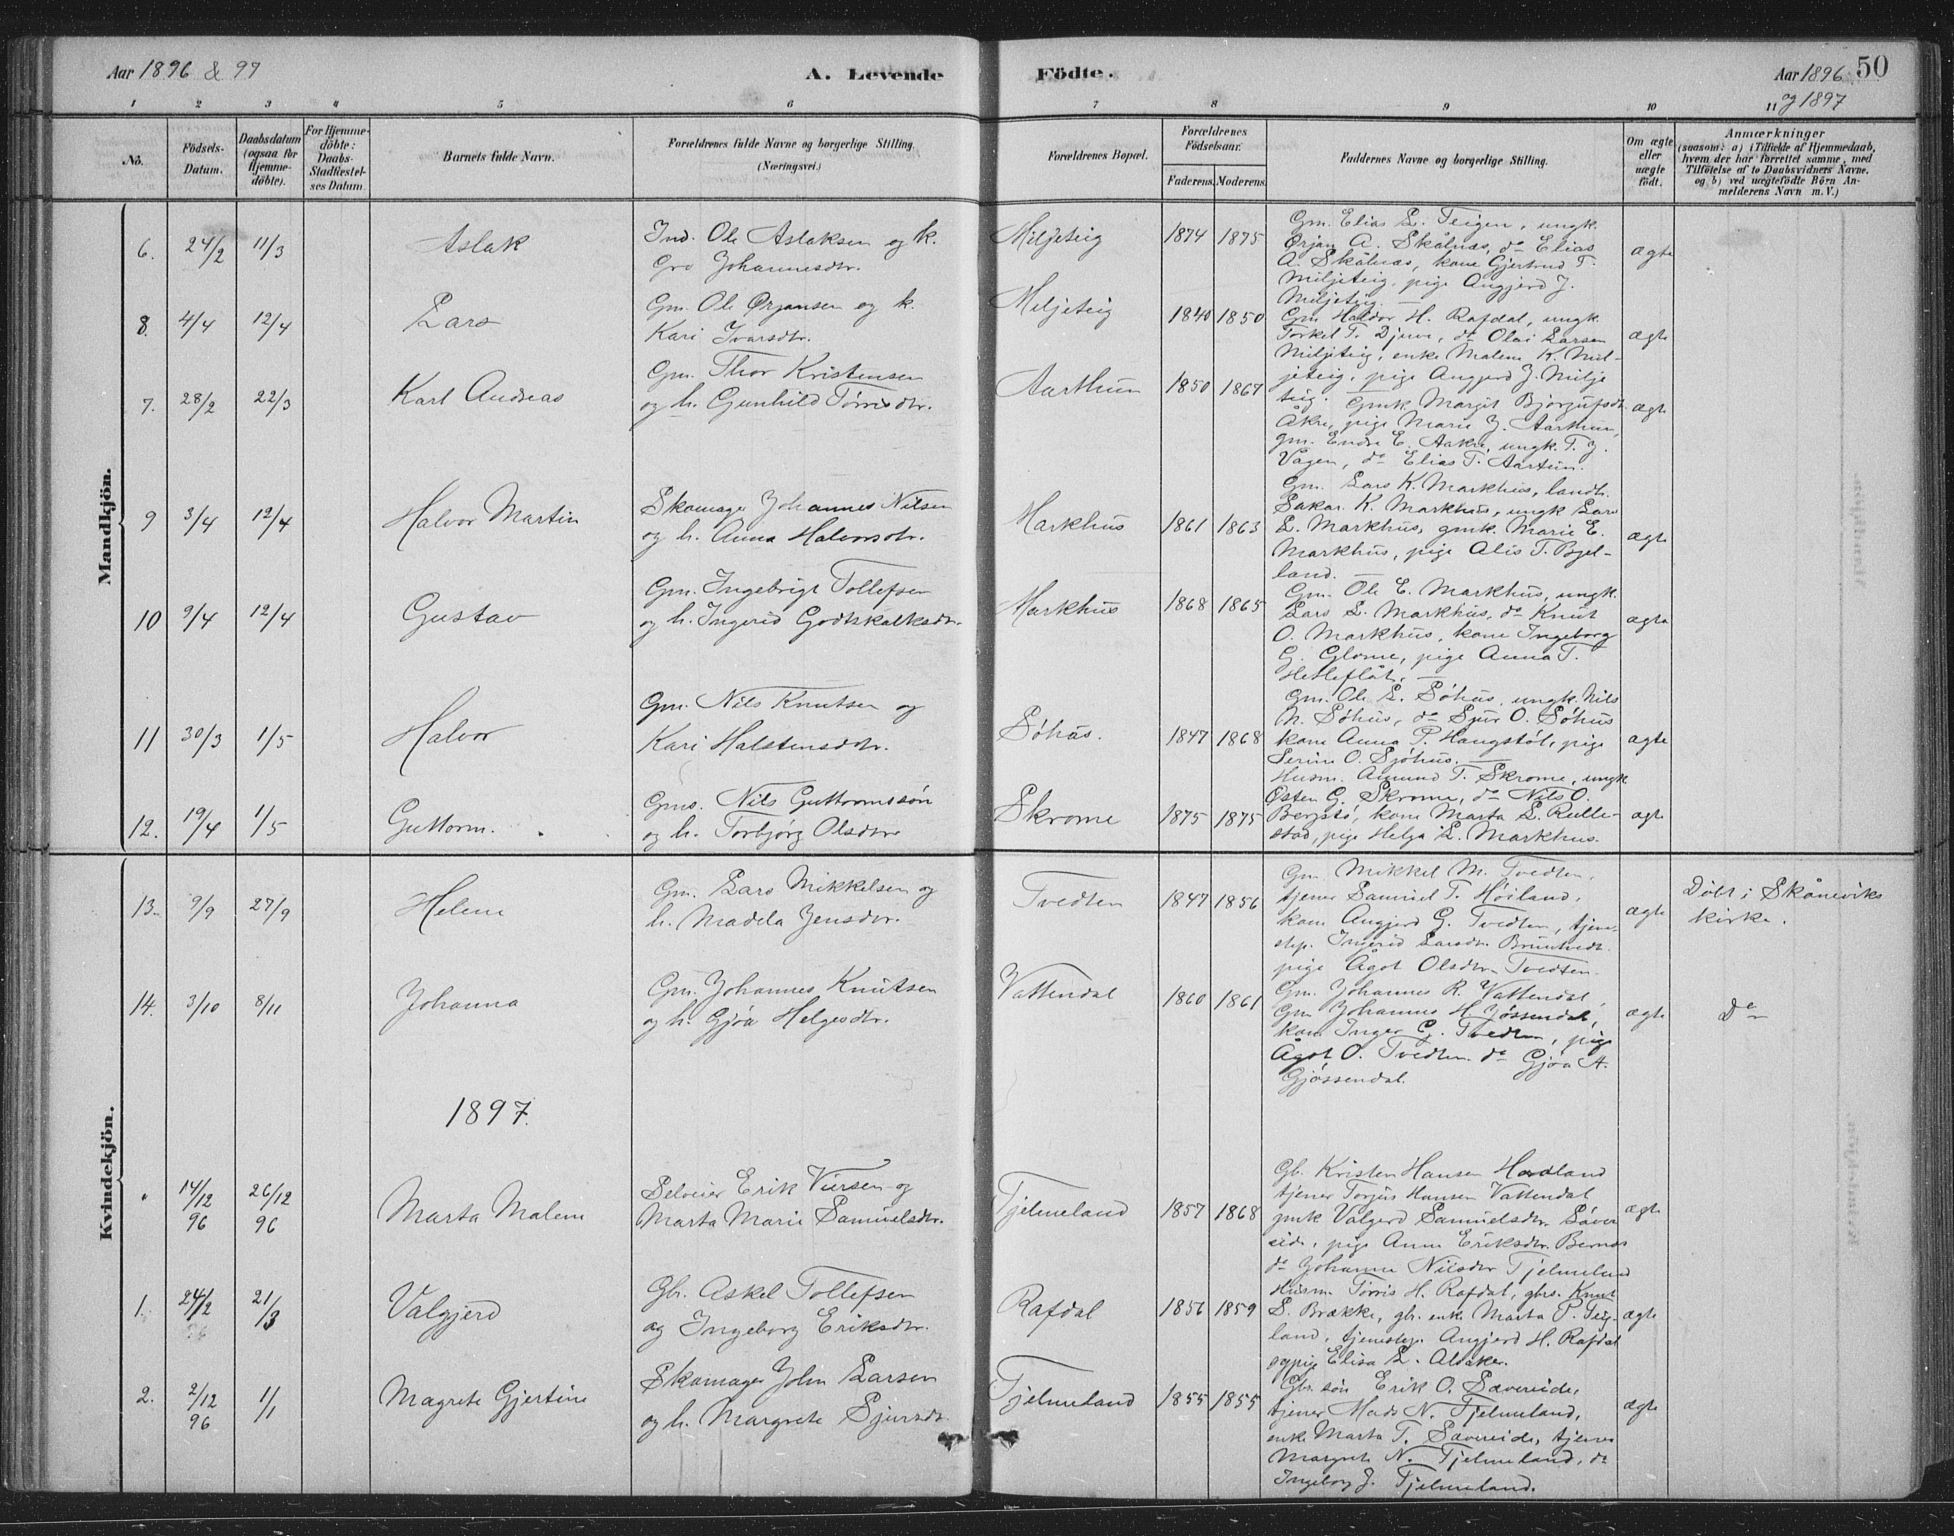 Aar 1896 & 97
A. Levende
Födte.
Aar 1896 50
og 1897
1 2 3 4 5 6 7 8 9 10 11
No.
Födsels-
Datum.
Daabsdatum
(ogsaa for
Hjemme-
döbte).
For Hjemme-
döbte:
Daabs-
Stadfæstel-
ses Datum.
Barnets fulde Navn.
Forældrenes fulde Navne og borgerlige Stilling.
(Næringsvei.)
Forældrenes Bopæl.
Forældrenes
Födselsaar.
Faderens. Moderens.
Faddernes Navne og borgerlige Stilling.
Om ægte
eller
uægte
födt.
Anmærkninger
(saasom: a) i Tilfælde af Hjemmedaab,
hvem der har forrettet samme, med
Tilföielse af to Daabsvidners Navne.
og b) ved uægtefödte Börn An-
melderens Navn m. V.)
Mandkjön.
6. 24/2 11/3 Aslak
Ind. Ole Aslaksen og k.
Gro Johannesdtr.
Miljeteig 1874 1875
Gm. Elias L. Teigen, ungk.
Ørjan A. Skålnæs, do Elias
A. Skålnæs, kone Gjertrud T.
Miljeteig, pige Angjerd J.
Miljeteig. —
ægte
8. 4/4 12/4 Lars
Gm. Ole Ørjansen og k.
Kari Ivarsdtr.
Miljeteig 1840 1850
Gm Haldor H. Rafdal, ungk.
Torkel T. Djuve, do Olai Larsen
Miljeteig, enke Malene K. Mil-
jeteig, pige Angjerd J. Milje
teig.
ægte
7. 28/2 22/3 Karl Andreas
Gm. Thor Kristensen
og h. Gunhild Tørrisdtr.
Aarthun 1850 1867
Gmk Margit Bjørgufsdtr.
Åkre, pige Marie J. Aarthun,
gm. Endre E. Aakre, ungk. T. J.
Vågen, do Elias T. Aartun.
ægte
9 3/4 12/4 Halvor Martin
Skomager Johannes Nilsen
og h. Anna Halvorsdtr.
Markhus 1861 1863
Gm. Lars K. Markhus, landh.
Sakar. K. Markhus, ungk Lars
L. Markhus, gmk. Marie E.
Markhus, pige Alis T. Bjel-
land. —
ægte
10 9/4 12/4 Gustav
Gm. Ingebrigt Tollefsen
og h. Ingerid Godtskalksdtr.
Markhus 1868 1865
Gm. Ole E. Markhus, ungk.
Lars L. Markhus, do Knut
O. Markhus, kone Ingeborg
G. Glome, pige Anna T.
Hetleflåt. —
ægte
11 30/3 1/5 Halvor
Gm. Nils Knutsen og
Kari Halstensdtr.
Söhus. 1847 1868
Gm. Ole L. Söhus, ungk. Nils
N. Söhus, do Sjur O. Söhus
kone Anna P. Haugstöl, pige
Serine O. Sjöhus. —
ægte
12. 19/4 1/5 Guttorm.
Gms. Nils Guttormssön
og h. Torbjörg Olsdtr
Skrome 1875 1875
Husm. Amund T. Skrome, ungk
Østen G. Skrome, do Nils O.
Bergstö, kone Marta L. Rulle-
stad, pige Helga L. Markhus.
ægte
Kvindekjön.
13. 9/9 27/9 Helene
Gm. Lars Mikkelsen og
h. Madela Jensdtr.
Tvedten 1847 1856
Gm Mikkel M. Tvedten,
tjener Samuel T. Höiland,
kone Angjerd G. Tvedten, tjene-
step. Ingerid Larsdtr Bruntvedt.
pige Ågot Olsdtr Tvedten.
ægte
Döbt i Skånevik
kirke.
14. 3/10 8/11 Johanna
Gm. Johannes Knutsen
og h. Gjöa Helgesdtr.
Vattendal 1860 1861
Gm. Johannes R. Vattendal,
Gm Johannes H. Jössendal,
kone Inger G. Tvedten, pige
Ågot O. Tvedten do Gjöa A.
Gjössendal.
ægte
Do
1897.
" 14/12 96 26/12 96 Marta Malene
Selveier Erik Viersen og
Marta Marie Samuelsdtr.
Tjelmeland 1857 1868
Gb. Kristen Hansen Hardland
tjener Torjus Hansen Vattendal
gmk Valgerd Samuelsdtr. Säver
eide, pige Anna Eriksdtr. Bernæs
do Johanne Nilsdtr Tjelmeland
ægte
1. 24/2 21/3 Valgjerd
Gbr. Askel Tollefsen
og Ingeborg Eriksdtr.
Rafdal 1856 1859
Husm. Törris H. Rafdal, gbrs. Knut
S. Brække, gbr. enke Marta P. Teig-
land, tjenestep. Angjerd H. Rafdal
og pige Elisa L. Alsaker.
ægte
2. 2/12 96 1/1 Magrete Gjertine
Skomager John Larsen
og h. Margrete Sjursdtr
Tjelmeland 1855 1855
Gbr. sön Erik O. Sævereide,
tjener Mads N. Tjelmeland,
enke Marta T. Sævereide, tjener
Margrete N. Tjelmeland, do
Ingeborg J. Tjelmeland.
ægte